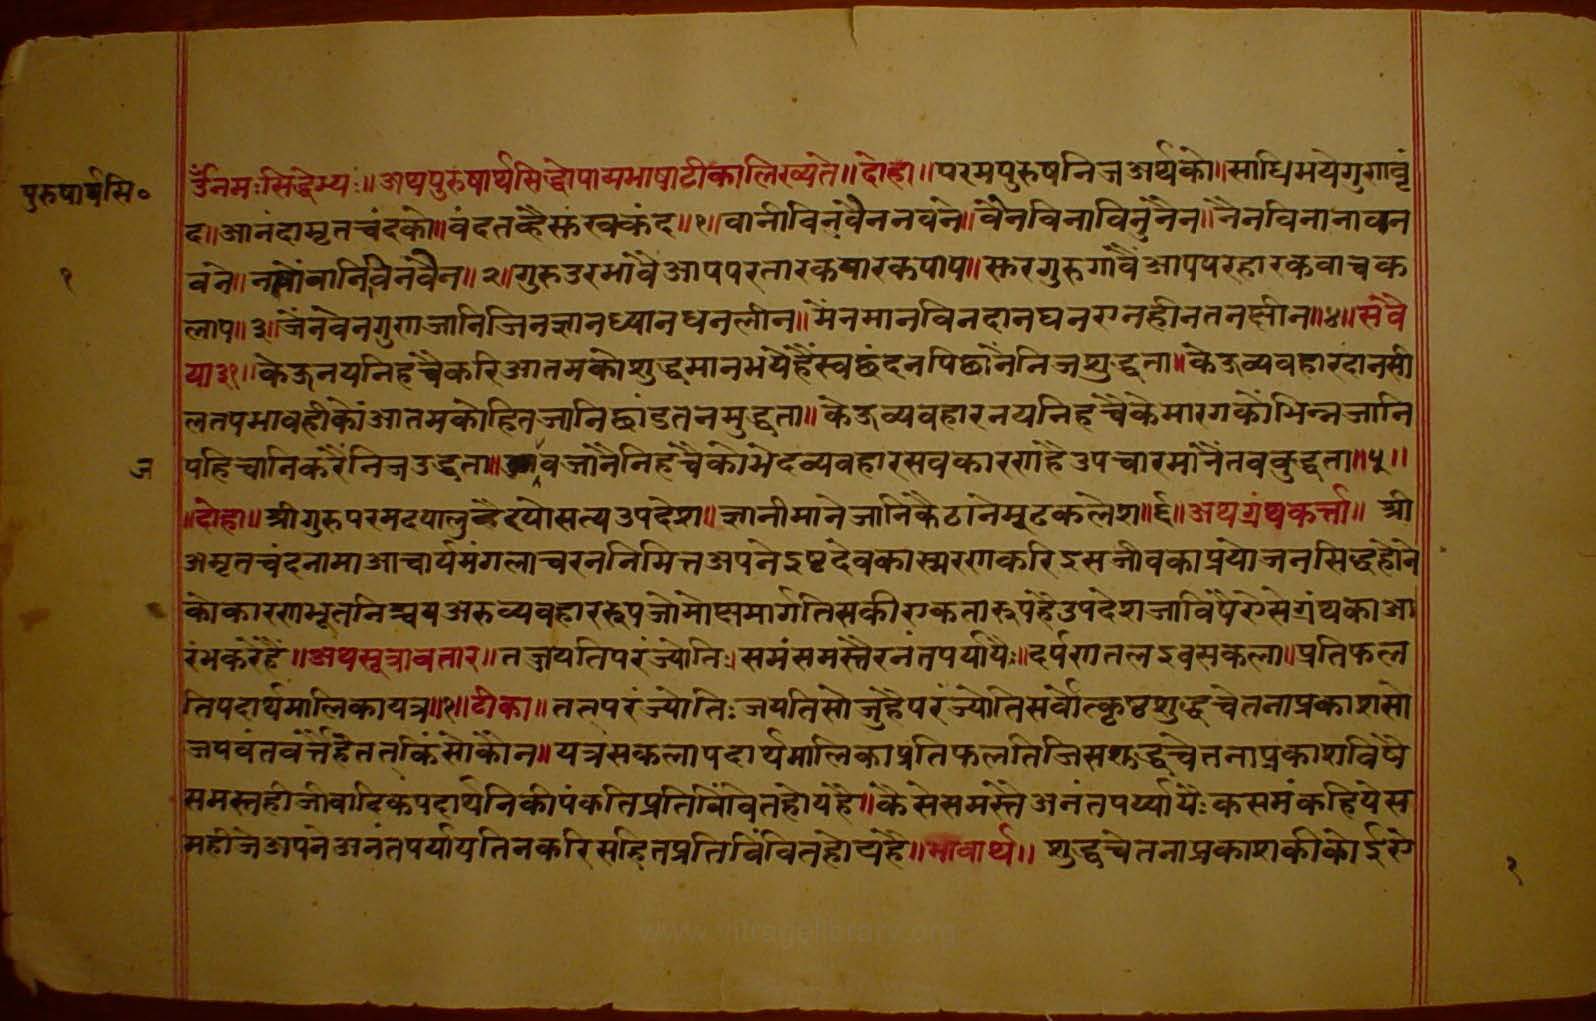 पुरुषार्थसि॰
ॐनमःसिद्धेभ्यः॥अथपुरुषार्थसिद्ध्योपायभाषाटीकालिख्यते॥दोहा॥परमपुरुषनिजअर्थको॥साधिभयेगुणवृं
द॥आनंदामृतचंदको॥वंदतव्हैसुखकंद॥१॥वानीविनवैननवने॥वैनविनाविनुनैन॥नैनविनानावान
१
वने॥ वानिविनवैन॥२॥गुरुउरभावैआपपरतारकवारकपाप॥सुरगुरुगावैआपपरहारकवाचक
लाप॥३॥जैनवैनगुणजानिजिनज्ञानध्यानधनलीन॥मैनमानविनदानघनएनहीनतनछीन॥४॥सवै
या३१॥केऊनयनिहचैकरिआतमकोशुद्धमानभयेहैंस्वछंदनपिछानैनिजशुद्धता॥केऊव्यवहारदानसी
लतपभावहीकोंआतमकोहितजानिछांडतनमुद्धता॥केऊव्यवहारनयनिहचैकेमारगकोंभिन्नजानि
ज
पहिचानिकरैनिजउद्धता॥ वजानैनिहचैकोभेदव्यवहारसवकारणहैउपचारमांनैतवबुद्धता॥५॥
॥दोहा॥श्रीगुरुपरमदयालुव्हैदयोसत्यउपदेश॥ज्ञानीमानेजानिकैठानेमूढकलेश॥६॥अथग्रंथकर्त्ता॥ श्री
अमृतचंदनामाआचार्यमंगलाचरननिमित्तअपनेइष्टदेवकास्मरणकरिइसजीवकाप्रयोजनसिद्धहोने
कोकारणभूतनिश्चयअरुव्यवहाररूपजोमोक्षमार्गतिसकीएकतारूपहैउपदेशजाविषैऐसेग्रंथकाआ
रंभकरैहैं॥अथसूत्रावतार॥तज्जयतिपरंज्योतिः।समंसमस्तैरनंतपर्यायैः॥दर्पणतलइवसकला॥प्रतिफल
तिपदार्थमालिकायत्र॥१॥टीका॥ततपरंज्योतिःजयतिसोजुहैपरंज्योतिसर्वोत्कृष्टशुद्धचेतनाप्रकाशसो
जयवंतवर्त्तैहैततकिंसोकौन॥यत्रसकलापदार्थमालिकाप्रतिफलतिजिसशुद्धचेतनाप्रकाशविषै
समस्तहीजीवादिकपदार्थनिकीपंकतिप्रतिविंवितहोयहै॥कैसेसमस्तैःअनंतपर्य्यायैःकसमंकहियेस
महीजेअपनेअनंतपर्यायतिनकरिसहितप्रतिविंवितहोयहै॥भावार्थ॥ शुद्धचेतनाप्रकाशकीकोईऐ
१
www.vitragelibrary.org